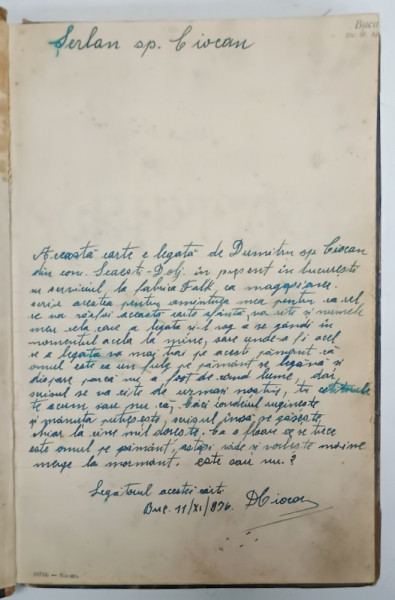 Șerban sp. Ciocan
Buca
Această carte e legată de Dumitru sp. Ciocan
din com. Seaca-Dolj. în prezent în București
cu serviciul, la fabrica Falk ca
scriu acestea pentru amintirea mea pentru ca cel
ce va răsfoi această carte sfântă, va citi și numele
meu cela care a legato și-l rog a se gândi în
momentul acela la mine, oare unde-o fi acel
ce a legato va mai fi pe acest pământ că
omul este ca un fulg pe pământ se leagănă și
dispare parcă nu a fost de când lume, dar
scrisul se va citi de urmași noștri, tu
te acum sau nu. că, căci condeiul ruginește
și mânuța putrezește, scrisul însă se găsește,
chiar la cine mil dorește. Ca o floare ce se trece
este omul pe pământ, astăzi râde și vorbește mâine
merge la mormânt. este sau nu?
Legătorul acestei cărți
Buc. 11/XI/936. DCiocan